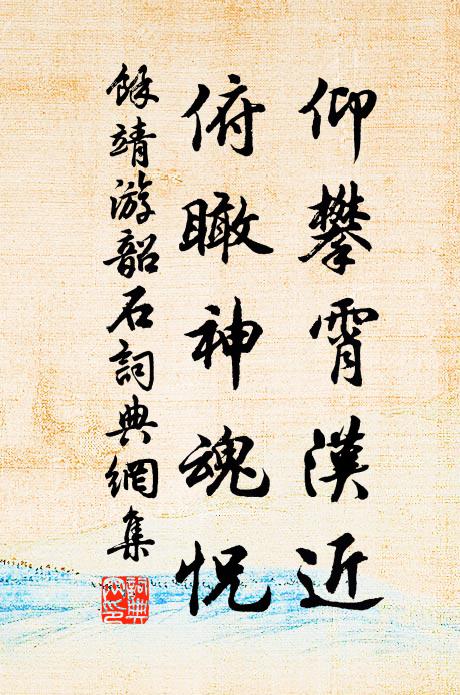 仰攀霄漢近
俯瞰神魂怳
餘靖游韶石詞典網集